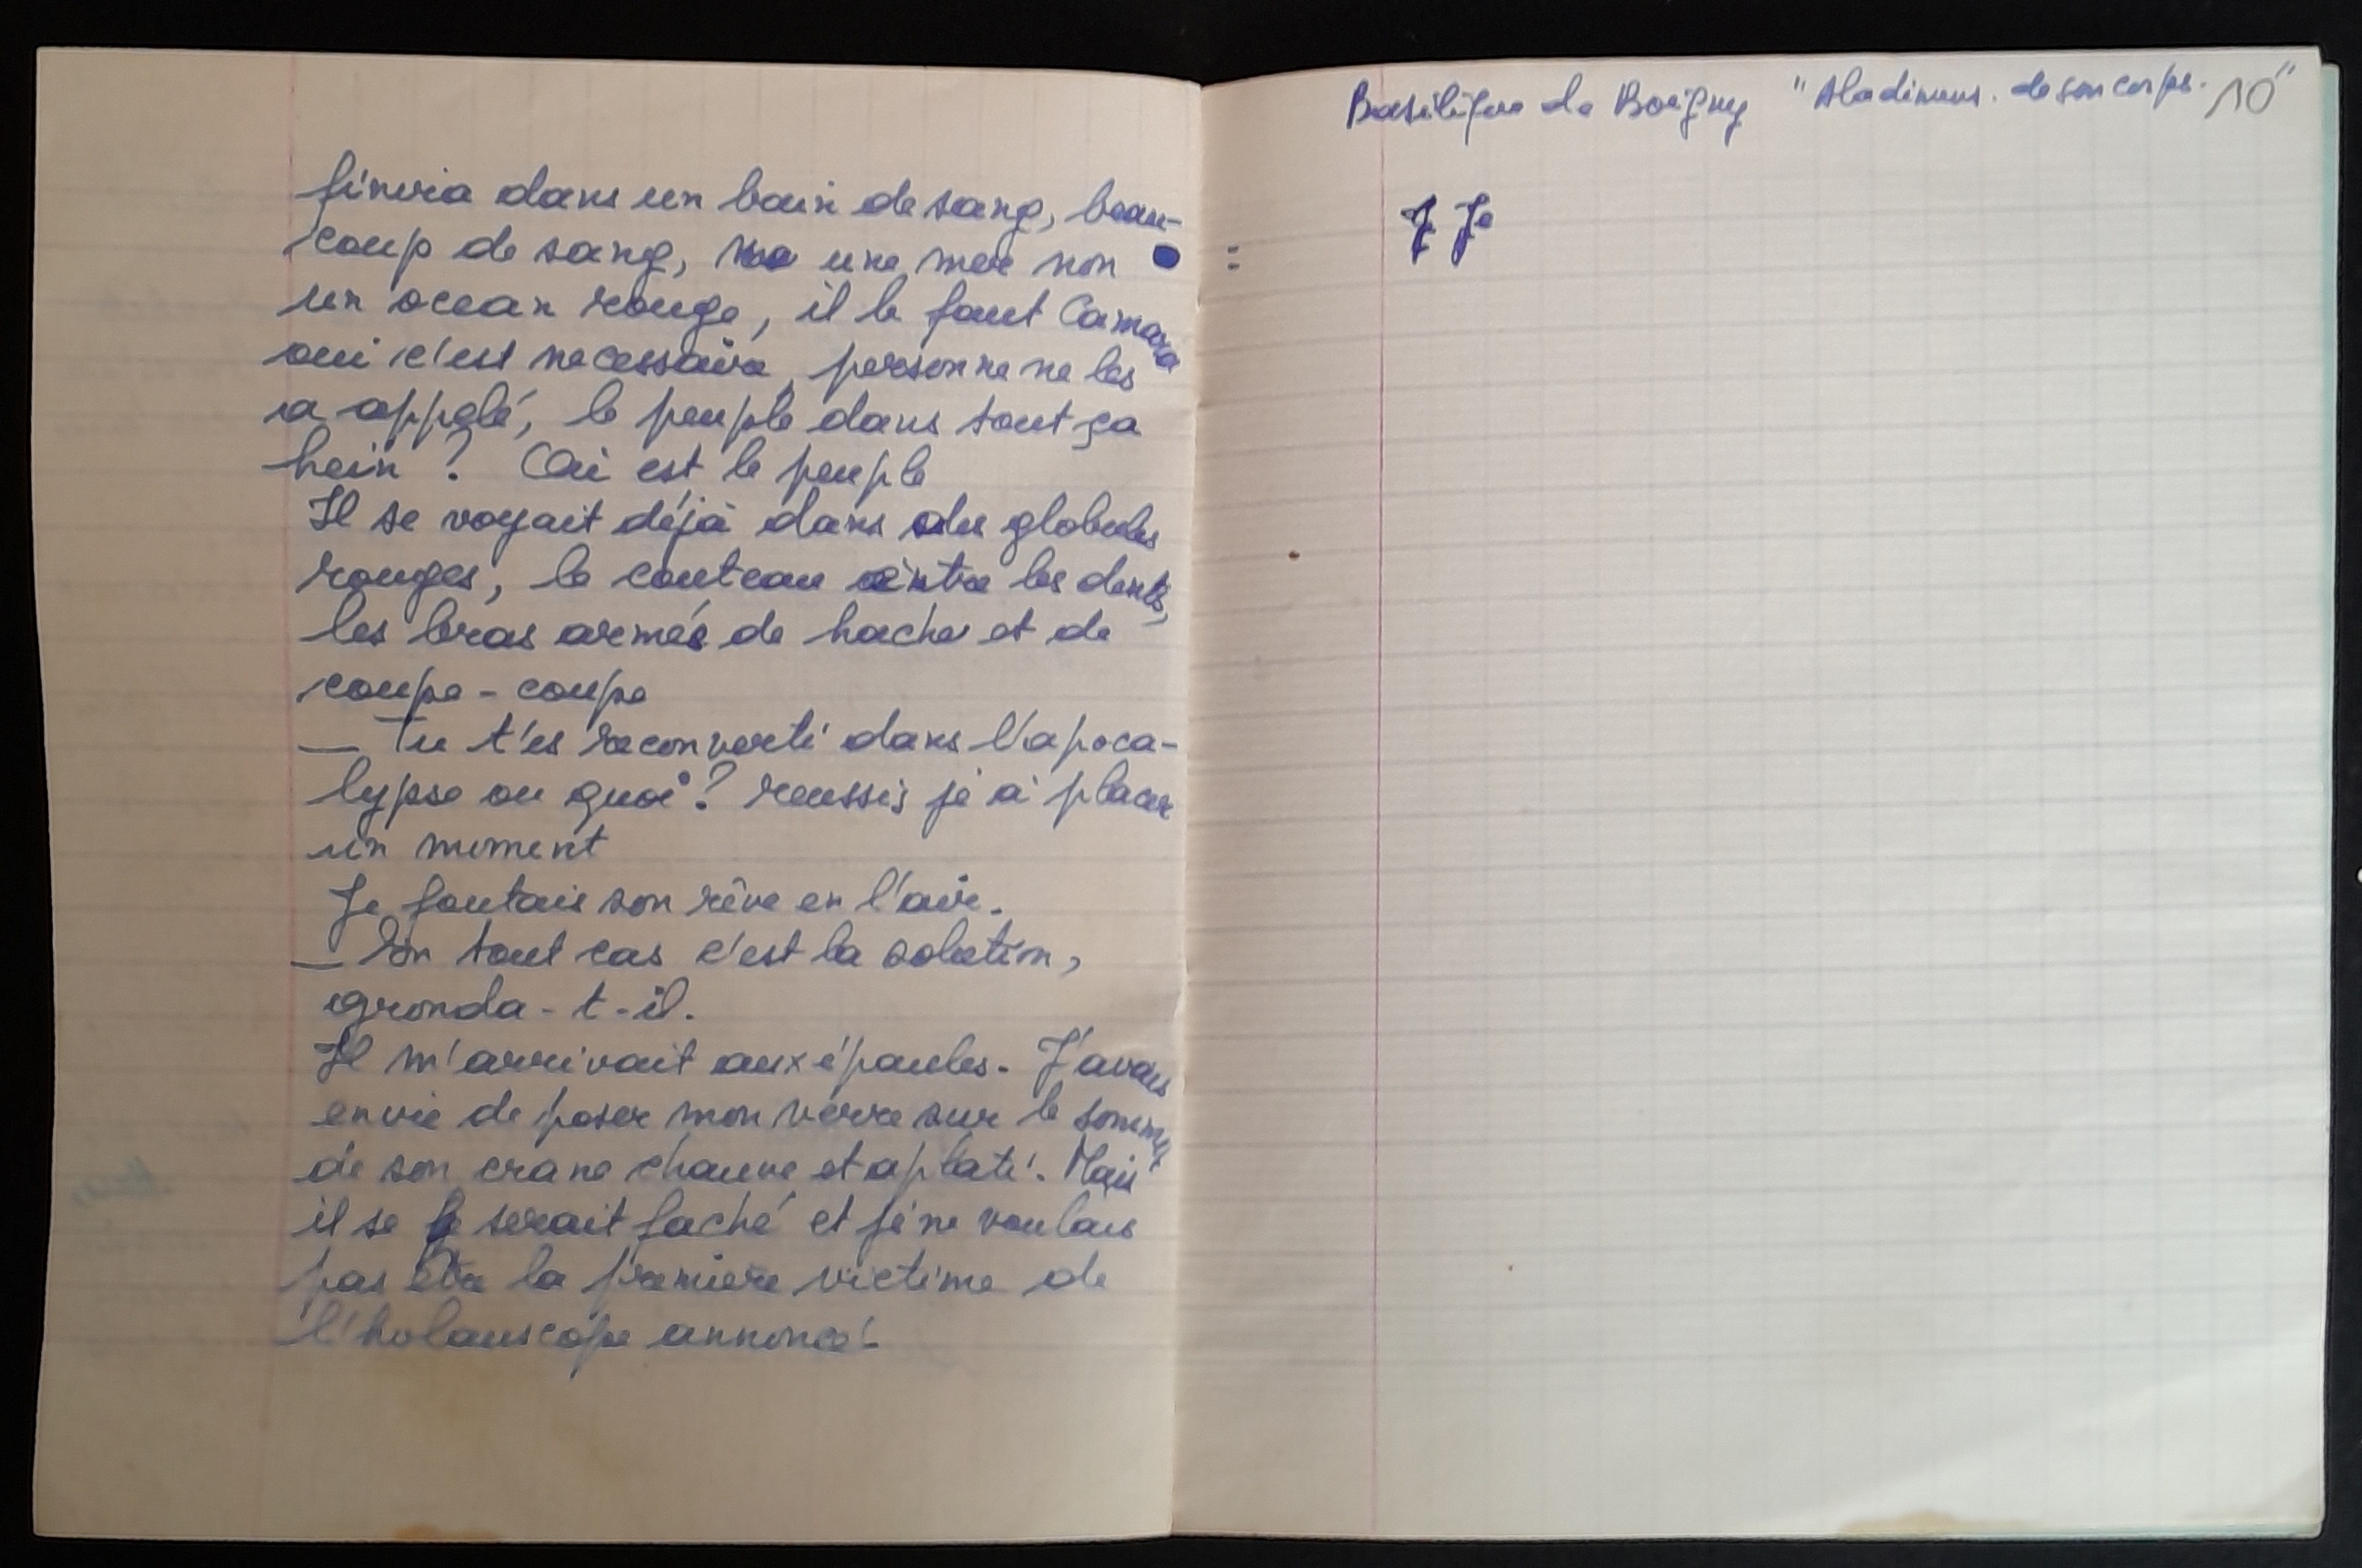 finira dans un bain de sang, beau-
coup de sang, une mer non
un ocean rouge, il le faut Camara
oui c'est necessaire, personne ne les
a appelé, le peuple dans tout ça
hein ? Où est le peuple
Il se voyait déjà dans des globules
rouges, le couteau entre les dents,
les bras armés de hache et de
coupe-coupe
— Tu t'es reconverti dans l'apoca-
lypse ou quoi ? reussis je à placer
un moment
Je foutais son rêve en l'air.
— En tout cas c'est la solution,
gronda-t-il.
Il m'arrivait aux épaules. J'avais
envie de poser mon verre sur le sommet
de son crane chauve et aplati. Mais
il se serait faché et je ne voulais
pas être la premiere victime de
l'holauscope annoncé.
Basilique de Boigny " de son corps. 10"
J Je